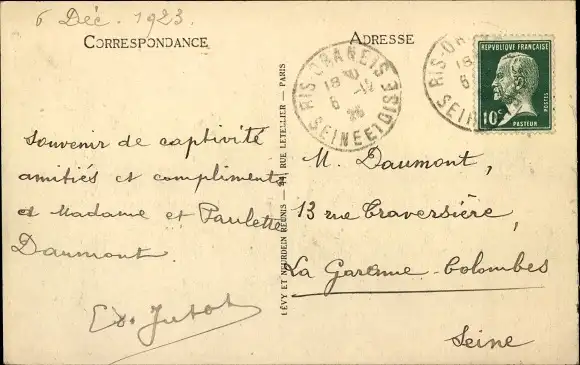 6 Déc. 1923.
CORRESPONDANCE
Souvenir de captivité
amitiés et compliments
à Madame et Paulette
Daumont.
LÉVY ET NEURDEIN RÉUNIS — 44, RUE LETELLIER — PARIS
ADRESSE
RIS-ORANGIS
18 30
6 -12
23
SEINE ET OISE
RIS-OR
18
6
SEINE
RÉPUBLIQUE FRANÇAISE
POSTES
10c
PASTEUR
M. Daumont,
13 rue Traversière,
La Garenne-Colombes
Seine